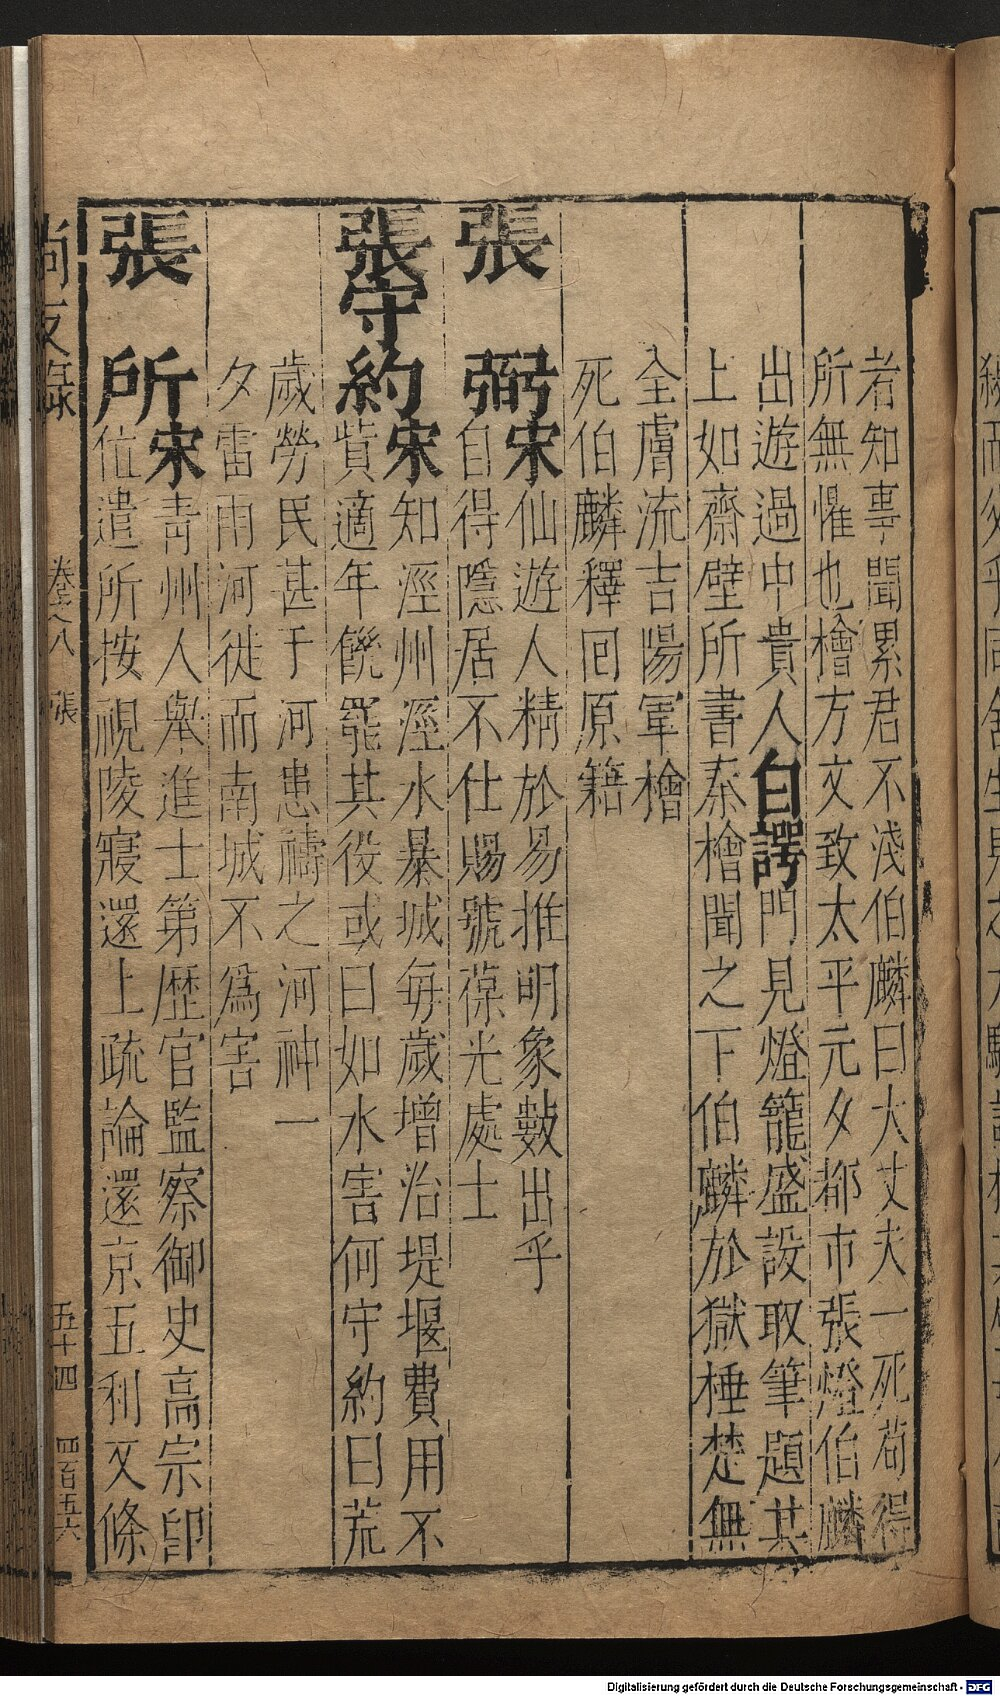 者知事聞累君不淺伯麟曰大丈夫一死苟得
所無懼也檜方文致太平元夕都市張燈伯麟
出遊過中貴人白諤門見燈籠盛設取筆題其
上如齋壁所書秦檜聞之下伯麟於獄棰楚無
全膚流吉陽軍檜
死伯麟釋回原籍
張弼宋仙遊人精於易推明象數出乎
自得隱居不仕賜號葆光處士
張守約宋知涇州涇水暴城每歲增治堤堰費用不
貲適年饑罷其役或曰如水害何守約曰荒
歲勞民甚于河患禱之河神一
夕雷雨河徙而南城不為害
張所宋青州人舉進士第歷官監察御史高宗卽
位遣所按視陵寢還上疏論還京五利又條
尚友錄
卷之八 張
五十四 四百五六
Digitalisierung gefördert durch die Deutsche Forschungsgemeinschaft - DFG